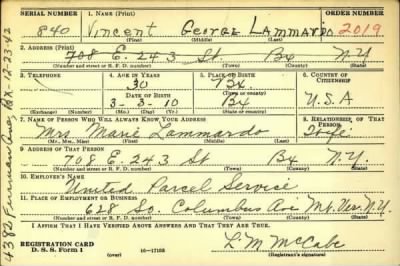 SERIAL NUMBER 1. NAME (Print) ORDER NUMBER
840 Vincent George Lammardo 2019
(First) (Middle) (Last)
2. ADDRESS (Print)
708 E. 243 St Bx N.Y.
(Number and street or R. F. D. number) (Town) (County) (State)
3. TELEPHONE 4. AGE IN YEARS 5. PLACE OF BIRTH 6. COUNTRY OF CITIZENSHIP
X 30 Bx.
DATE OF BIRTH (Town or county)
3-3-10 Bx U.S.A
(Exchange) (Number) (Mo.) (Day) (Yr.) (State or country)
7. NAME OF PERSON WHO WILL ALWAYS KNOW YOUR ADDRESS 8. RELATIONSHIP OF THAT PERSON
Mrs Marie Lammardo Wife
(Mr., Mrs., Miss) (First) (Middle) (Last)
9. ADDRESS OF THAT PERSON
708 E. 243 St Bx N.Y.
(Number and street or R. F. D. number) (Town) (County) (State)
10. EMPLOYER'S NAME
United Parcel Service
11. PLACE OF EMPLOYMENT OR BUSINESS
628 So. Columbus Ave Mt. Ver. N.Y.
(Number and street or R. F. D. number) (Town) (County) (State)
I AFFIRM THAT I HAVE VERIFIED ABOVE ANSWERS AND THAT THEY ARE TRUE.
REGISTRATION CARD
D. S. S. Form 1 (over) 16-17105
L. M. McCabe
4382 Furman Ave, BX-12-23-42